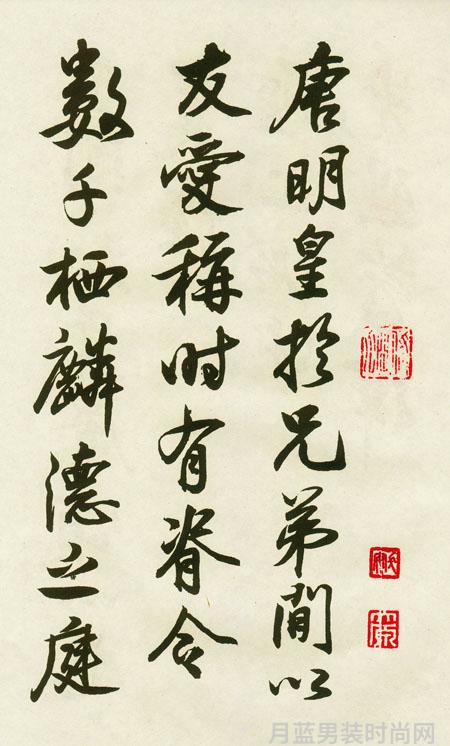 唐明皇於兄弟間以
友愛稱時有脊令
數千栖麟德之庭
月蓝男装时尚网